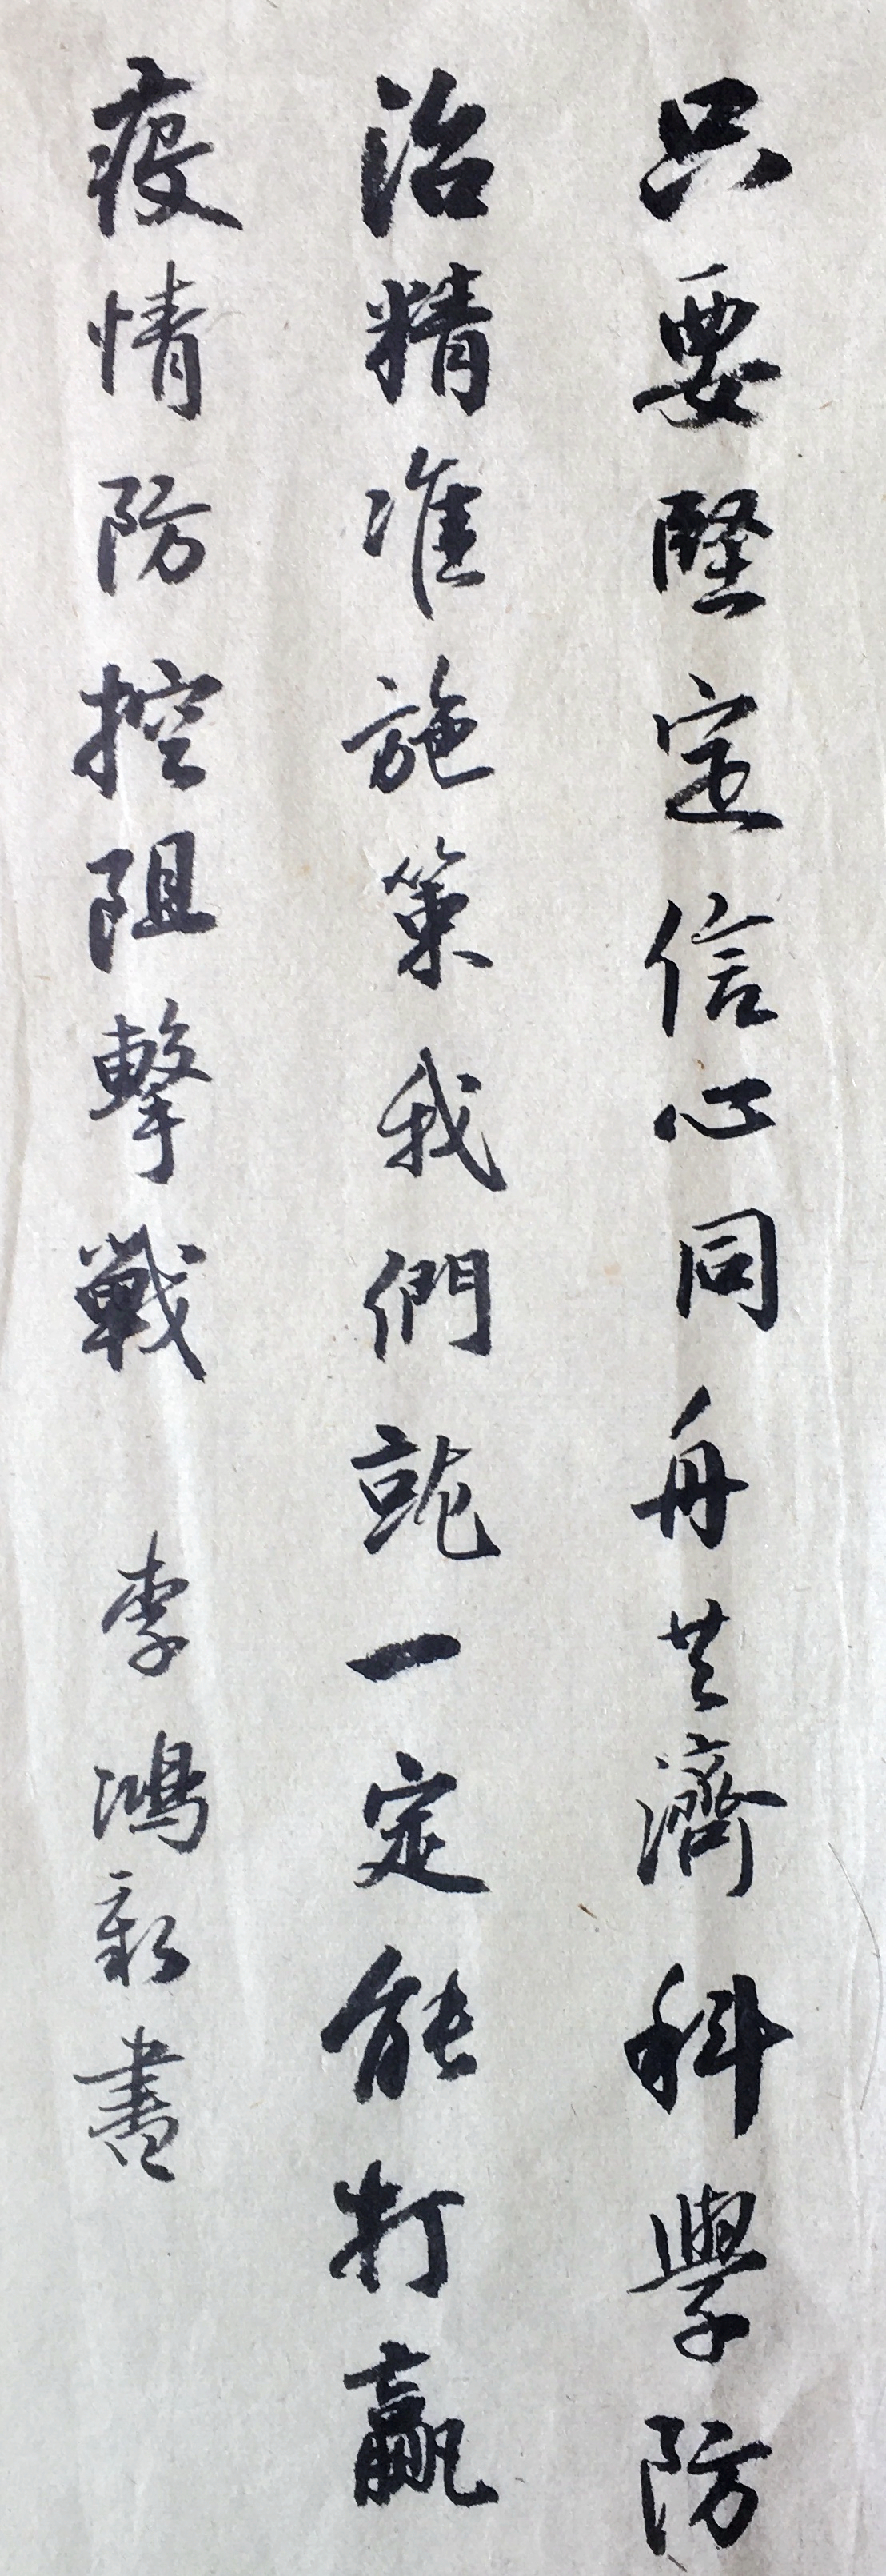 只要堅定信心同舟共濟科學防
治精准施策我們就一定能打贏
疫情防控阻擊戰 李鴻新書